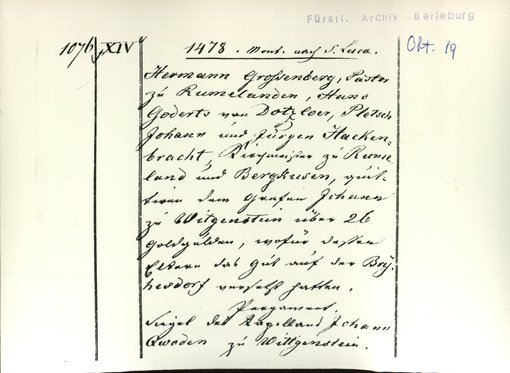 Fürstl. Archiv Berleburg
1076 XIV 1478. Mont. nach S. Luca. Okt. 19
Hermann Grossenberg, Pastor
zu Rumelanden, Hans
Goderts von Dotzloer, Pletsch
Johann und Jürgen Hacken-
bracht, Kirchmeister zu Rume
land und Berghusen, quit-
tiren dem Grafen Johann
zu Witgenstein über 26
Goldgulden, wofür dessen
Eltern das Gut auf der
versetzt hatten.
Pergament.
Siegel des Johann
Qwoden zu Wittgenstein.